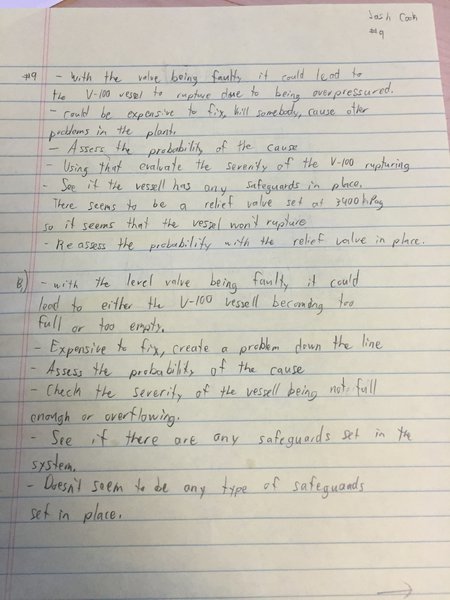 Josh Cook
#9
#9 - with the valve being faulty it could lead to
the V-100 vessel to rupture due to being overpressured.
- could be expensive to fix, kill somebody, cause other
problems in the plant.
- Assess the probability of the cause
- Using that evaluate the severity of the V-100 rupturing
- See if the vessell has any safeguards in place.
There seems to be a relief valve set at 3400 kPag
so it seems that the vessel won't rupture
- Re assess the probability with the relief valve in place.
B.) - with the level valve being faulty it could
lead to either the V-100 vessell becoming too
full or too empty.
- Expensive to fix, create a problem down the line
- Assess the probability of the cause
- Check the severity of the vessell being not full
enough or overflowing.
- See if there are any safeguards set in the
system.
- Doesn't seem to be any type of safeguards
set in place.